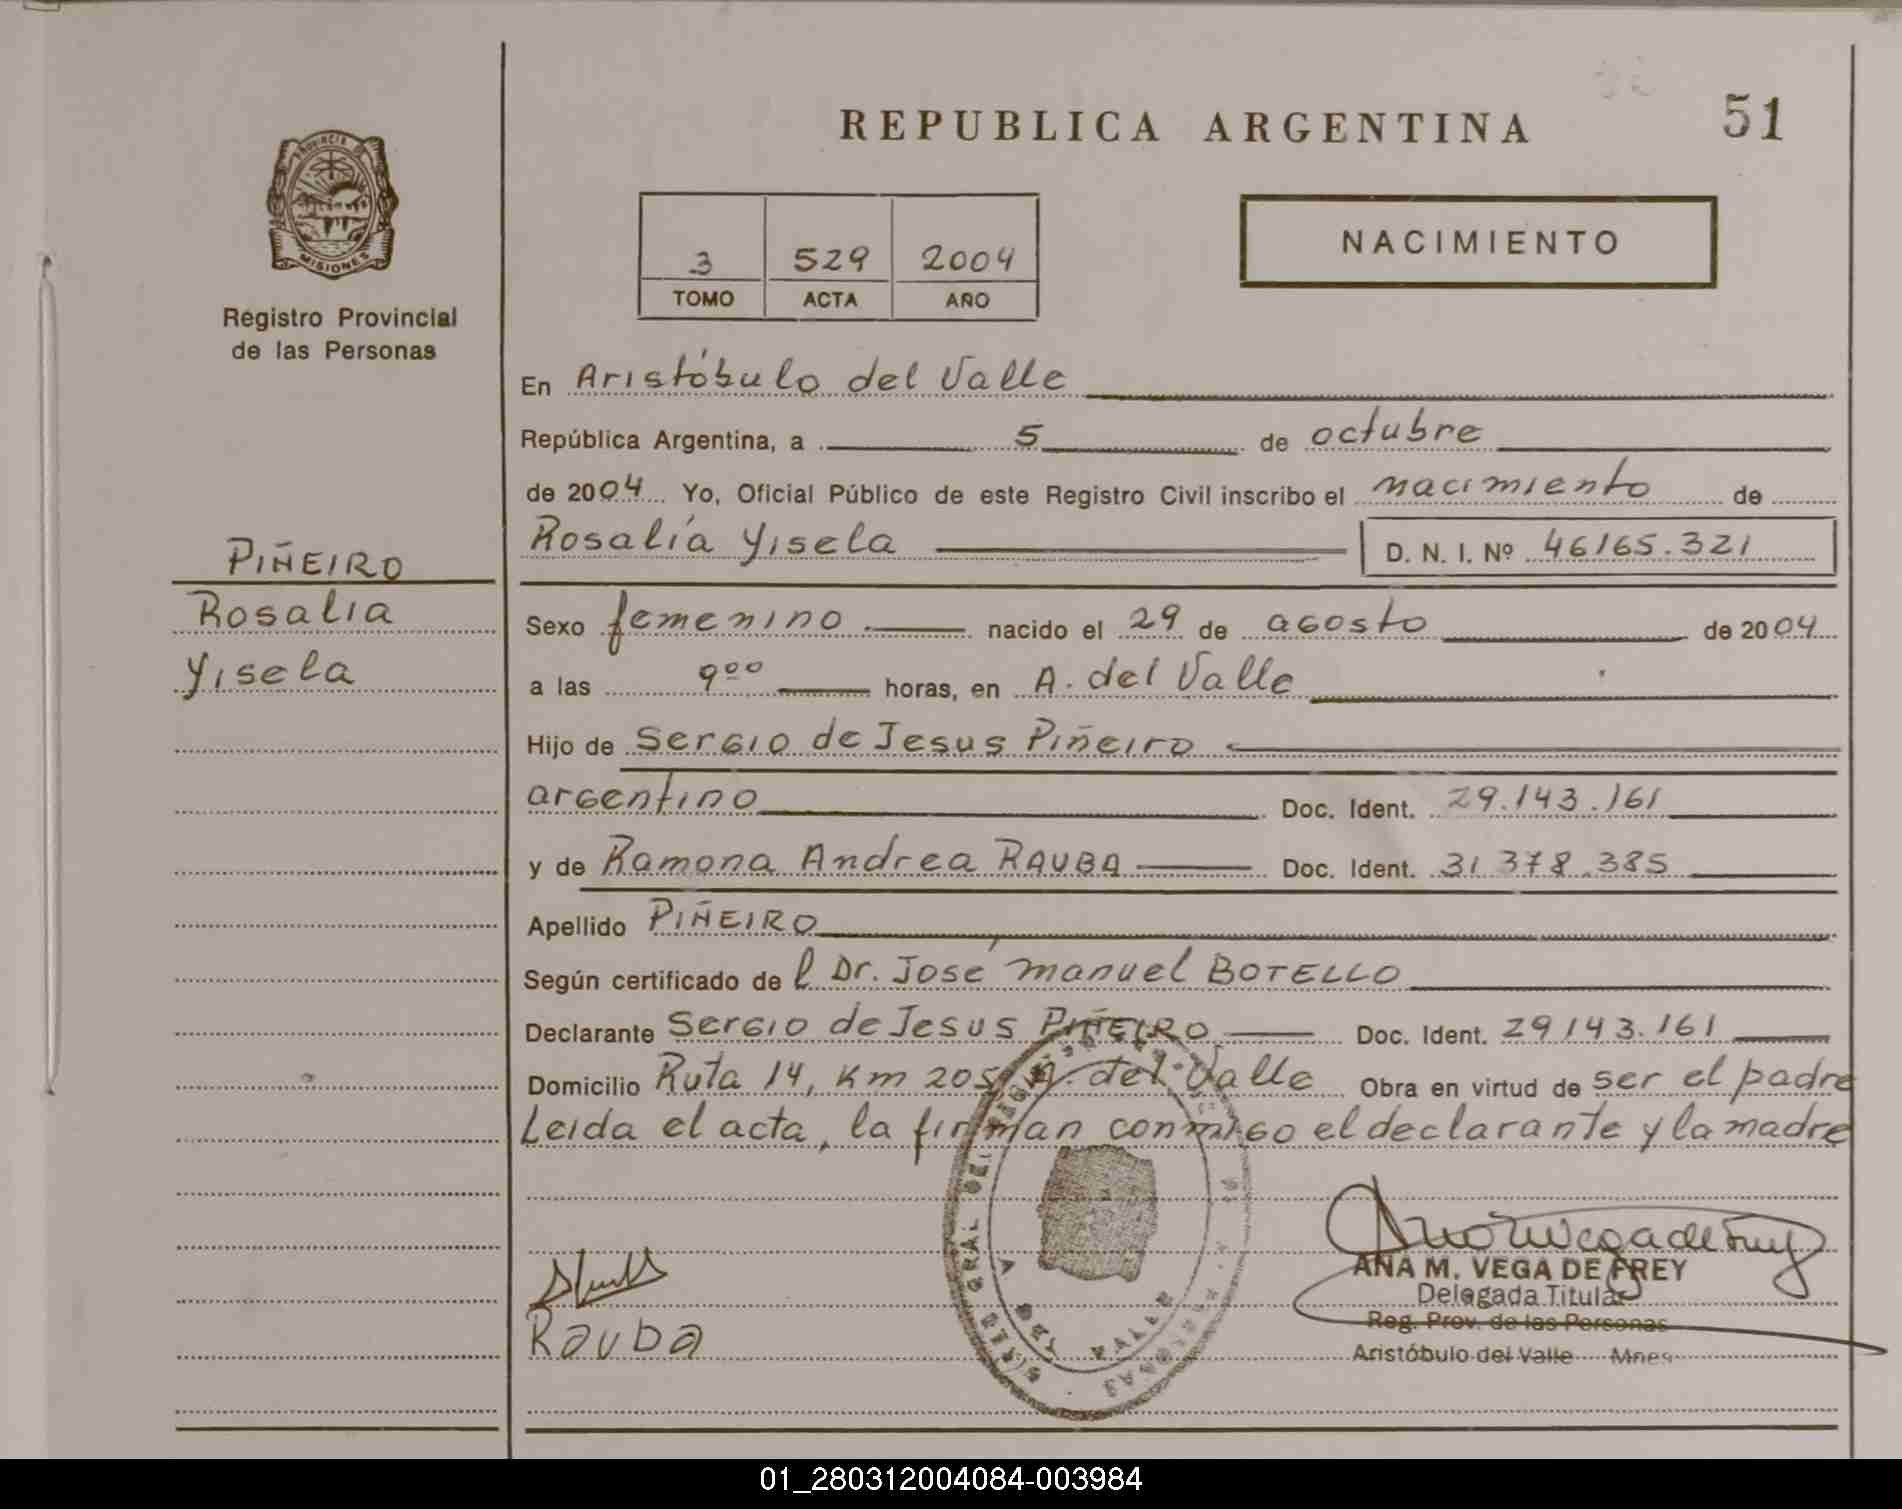 PROVINCIA DE
MISIONES
Registro Provincial
de las Personas
PIÑEIRO
Rosalia
Yisela
REPUBLICA ARGENTINA
51
3 529 2004
TOMO ACTA AÑO
NACIMIENTO
En Aristóbulo del Valle
República Argentina, a 5 de octubre
de 2004 Yo, Oficial Público de este Registro Civil inscribo el nacimiento de
Rosalía Yisela D. N. I. Nº 46165.321
Sexo femenino nacido el 29 de agosto de 2004
a las 9⁰⁰ horas, en A. del Valle
Hijo de Sergio de Jesus Piñeiro
argentino Doc. Ident. 29.143.161
y de Ramona Andrea RAUBA Doc. Ident. 31 378.385
Apellido PIÑEIRO
Según certificado de l Dr. José manuel BOTELLO
Declarante Sergio de Jesus PIÑEIRO Doc. Ident. 29143.161
Domicilio Ruta 14, Km 205, A. del Valle Obra en virtud de ser el padre
Leida el acta, la firman conmigo el declarante y la madre
Rauba
A DEL VALLE
ANA M. VEGA DE FREY
Delegada Titular
Reg. Prov. de las Personas
Aristóbulo del Valle Mnes
01_280312004084-003984